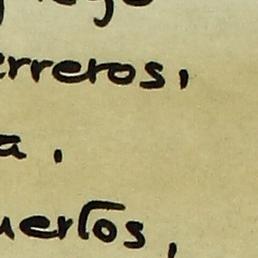 erreros,
a.
uertos,